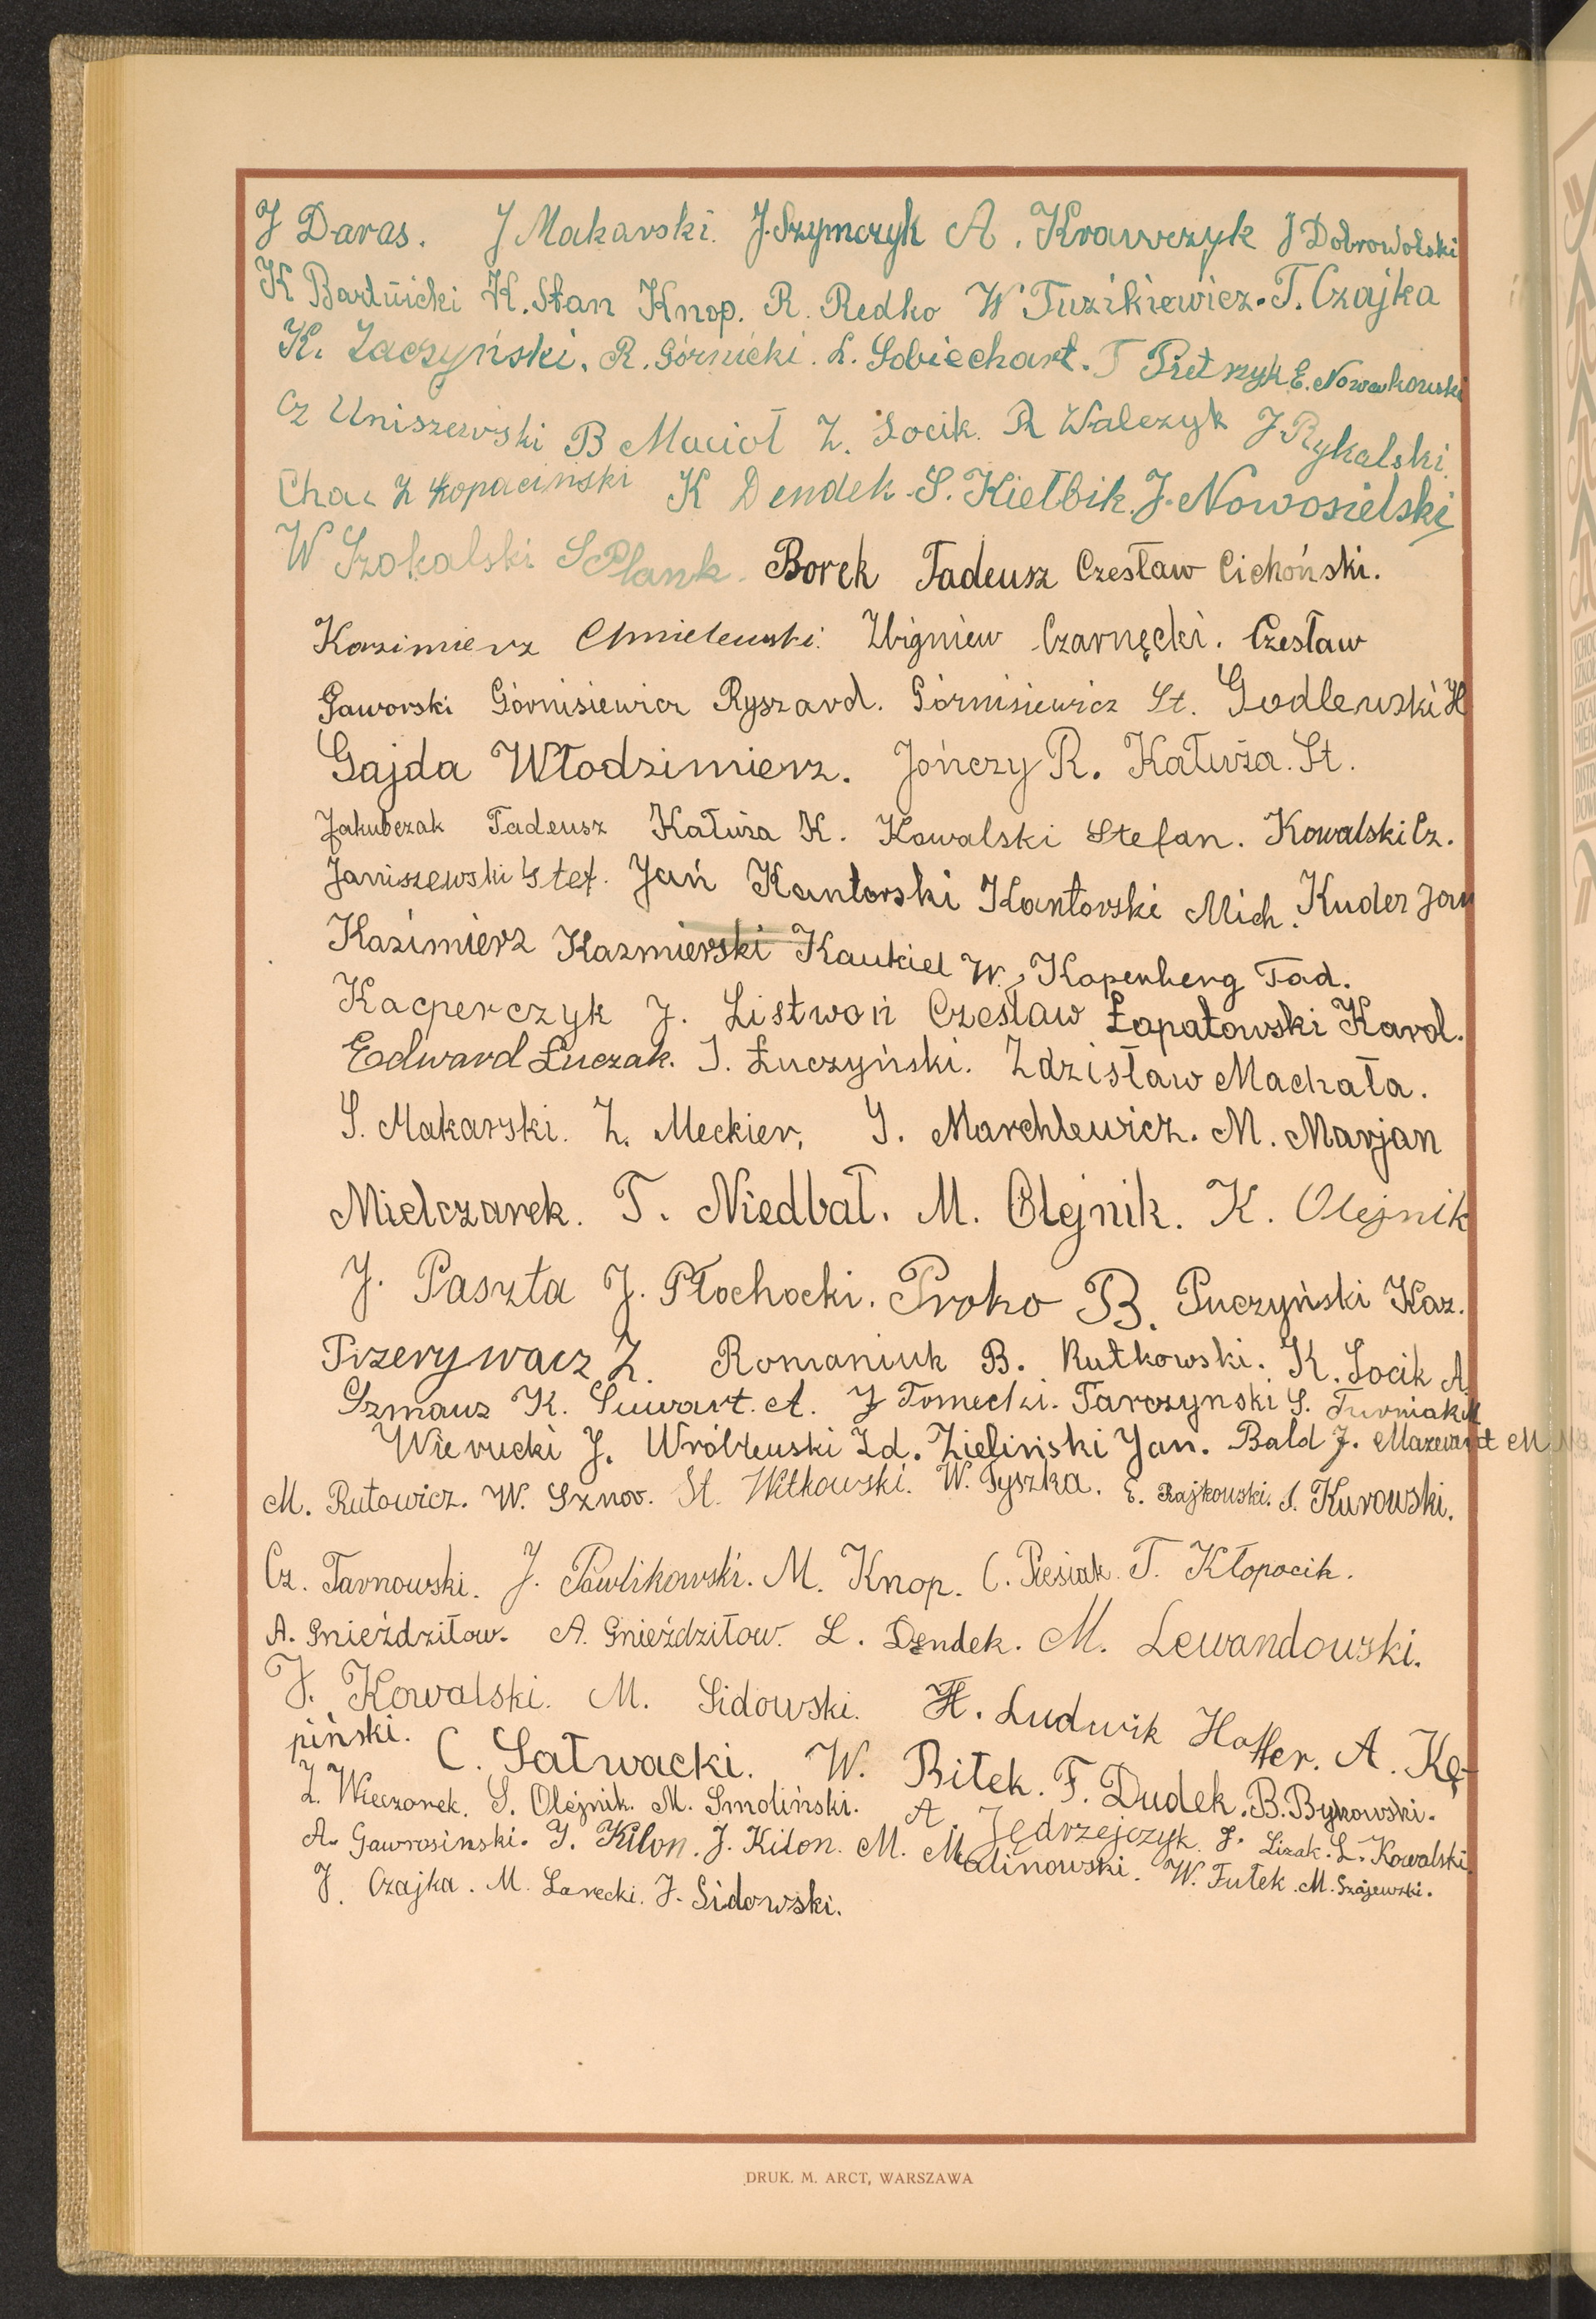 J Daras. J Makarski. J. Szymczyk A. Krawczyk J Dobrowolski
K Bartnicki K. Stan Knop. R. Redko W Tuzikiewicz. T. Czajka
K. Zaczyński. R. Górnicki. L. Sobiechart. T Pietrzyk E. Nowakowski
Cz Uniszewski B Macioł Z. Socik. R Walczyk J Rykalski.
Z Łopaciński K Dendek. S. Kiełbik. J. Nowosielski
W Szokalski S Plank. Borek Tadeusz Czesław Cichoński.
Kazimierz Chmielewski. Zbigniew Czarnęcki. Czesław
Gaworski Górnisiewicz Ryszard. Górnisiewicz St. Godlewski H
Gajda Włodzimierz. Jończy R. Kałuża. St.
Jakubczak Tadeusz Kałuża K. Kowalski Stefan. Kowalski Cz.
Janiszewski Stef. Jań Kantorski Kantorski Mich. Kuder Jan
Kazimierz Kazmierski Kaukiel W., Kopenberg Tad.
Kacperczyk J. Listwoń Czesław Łopatowski Karol.
Edward Łuczak. J. Łuczyński. Zdzisław Machała.
S. Makarski. Z. Meckier, J. Marchlewicz. M. Marjan
Mielczarek. T. Niedbał. M. Olejnik. K. Olejnik
J. Paszta J. Płochocki. Proko B. Puczyński Kaz.
Przerywacz Z. Romaniuk B. Rutkowski. K. Socik A.
Szmauz K. Suwart. A. J Tomecki. Tarczynski S. Turniak M
Wierucki J. Wróblewski Zd. Zieliński Jan. Bald J.
M. Rutowicz. W. Sznor. St. Witkowski. W. Tyszka. E. Rajkowski. S. Kurowski.
Cz. Tarnowski. J. Pawlikowski. M. Knop. C. Piesiak. T. Kłopocik.
A. Gnieździłow. A. Gnieździłow. L. Dendek. M. Lewandowski.
J. Kowalski. M. Sidowski. H. Ludwik Hoffer. A. Kę-
piński. C. Sałwacki. W. Bitek. F. Dudek. B. Bykowski.
Z. Wieczorek. S. Olejnik. M. Smoliński. A. Jędrzejczyk. J. Lizak. L. Kowalski.
A. Gawrosinski. J. Kilon. J. Kilon. M. Malinowski. W. Futek. M. Szajewski.
J. Czajka. M. Sarecki. J. Sidowski.
DRUK. M. ARCT, WARSZAWA